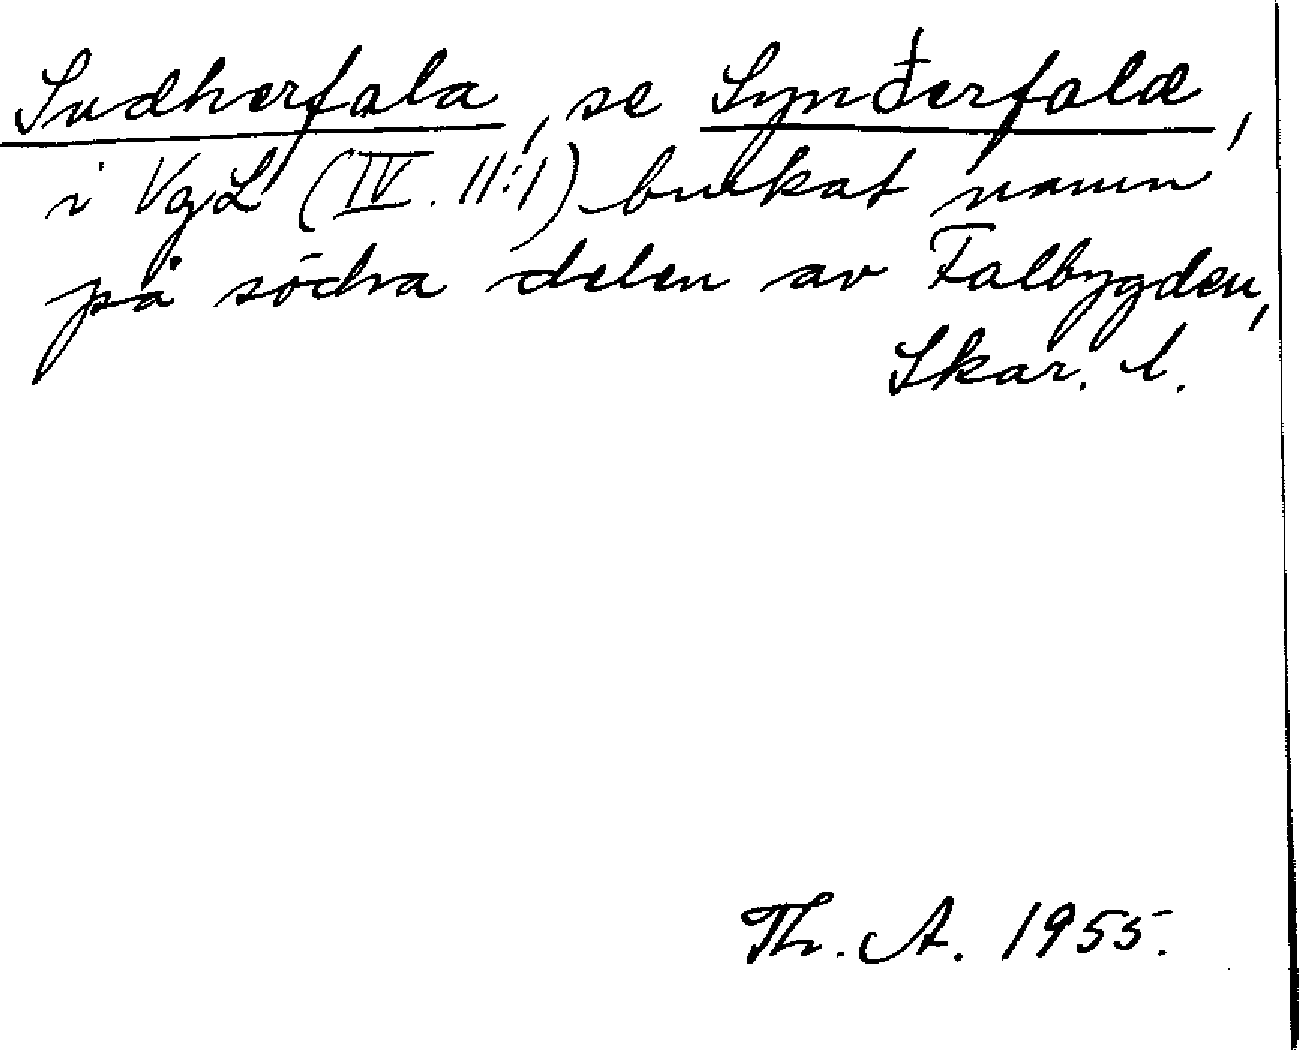 Sudherfala, se Synðerfalæ,
i VgL (IV. 11:1) brukat namn
på södra delen av Falbygden,
Skar. l.
Th. A. 1955.